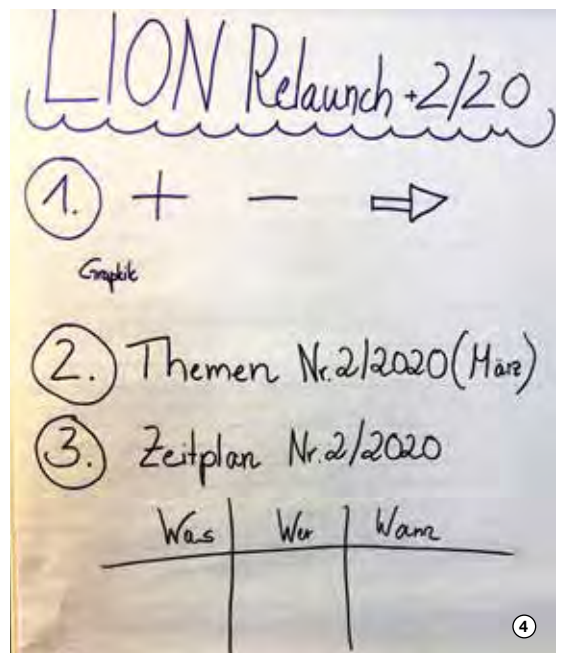 LION Relaunch + 2/20
1. + - ⇒
Graphik
2. Themen Nr. 2/2020 (März)
3. Zeitplan Nr. 2/2020
Was Wer Wann
4